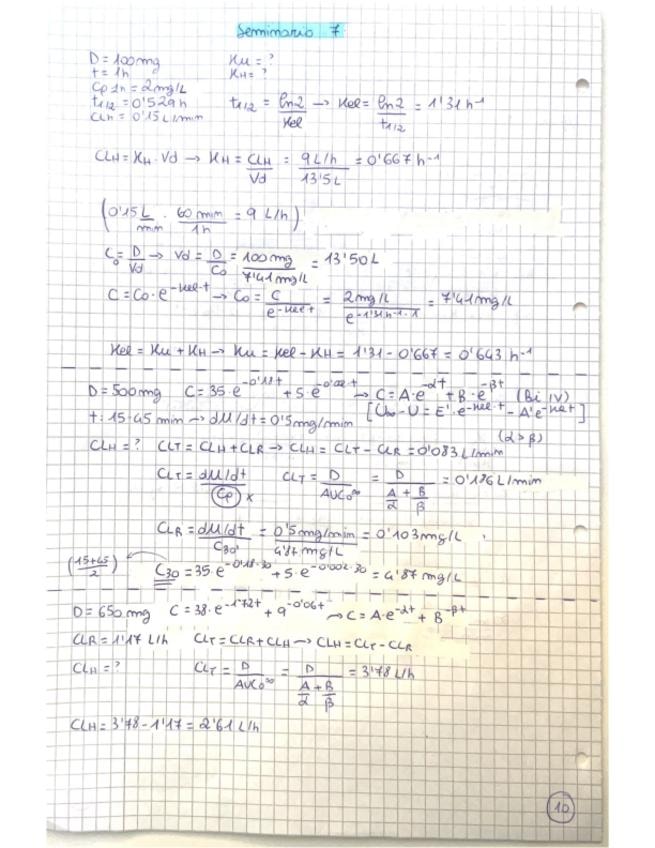 Seminario 7
D = 100mg Ku = ?
t = 1h KH = ?
Cp 1h = 2mg/L
t1/2 = 0'529h t1/2 = ln2/Kel → Kel = ln2/t1/2 = 1'31h⁻¹
CLh = 0'15 L/min
CLH = KH · Vd → KH = CLH/Vd = 9L/h / 13'5L = 0'667 h⁻¹
(0'15 L/min · 60 min/1h = 9 L/h)
C₀ = D/Vd → Vd = D/C₀ = 100mg / 7'41mg/L = 13'50L
C = C₀·e^-kel·t → C₀ = C/e^-kel t = 2mg/L / e^-1'31h⁻¹·1 = 7'41mg/L
Kel = Ku + KH → Ku = Kel - KH = 1'31 - 0'667 = 0'643 h⁻¹
D = 500mg C = 35·e^-0'18t + 5·e^-0'02t → C = A·e^-αt + B·e^-βt (Bi IV)
t: 15-45 min → dU/dt = 0'5mg/min [U∞-U = E'·e^-kel·t - A'e^-kat]
(α>β)
CLH = ? CLT = CLH + CLR → CLH = CLT - CLR = 0'083 L/min
CLT = dU/dt / Cp x CLT = D/AUC₀^∞ = D / A/α + B/β = 0'186 L/min
CLR = dU/dt / C30' = 0'5mg/min / 4'87 mg/L = 0'103mg/L
(15+45/2) C30 = 35·e^-0'18·30 + 5·e^-0'002·30 = 4'87 mg/L
D = 650mg C = 38·e^-1'72t + 9^-0'06t → C = A·e^-αt + B^-βt
CLR = 1'17 L/h CLT = CLR + CLH → CLH = CLT - CLR
CLH = ? CLT = D/AUC₀^∞ = D / A/α + B/β = 3'78 L/h
CLH = 3'78 - 1'17 = 2'61 L/h
10